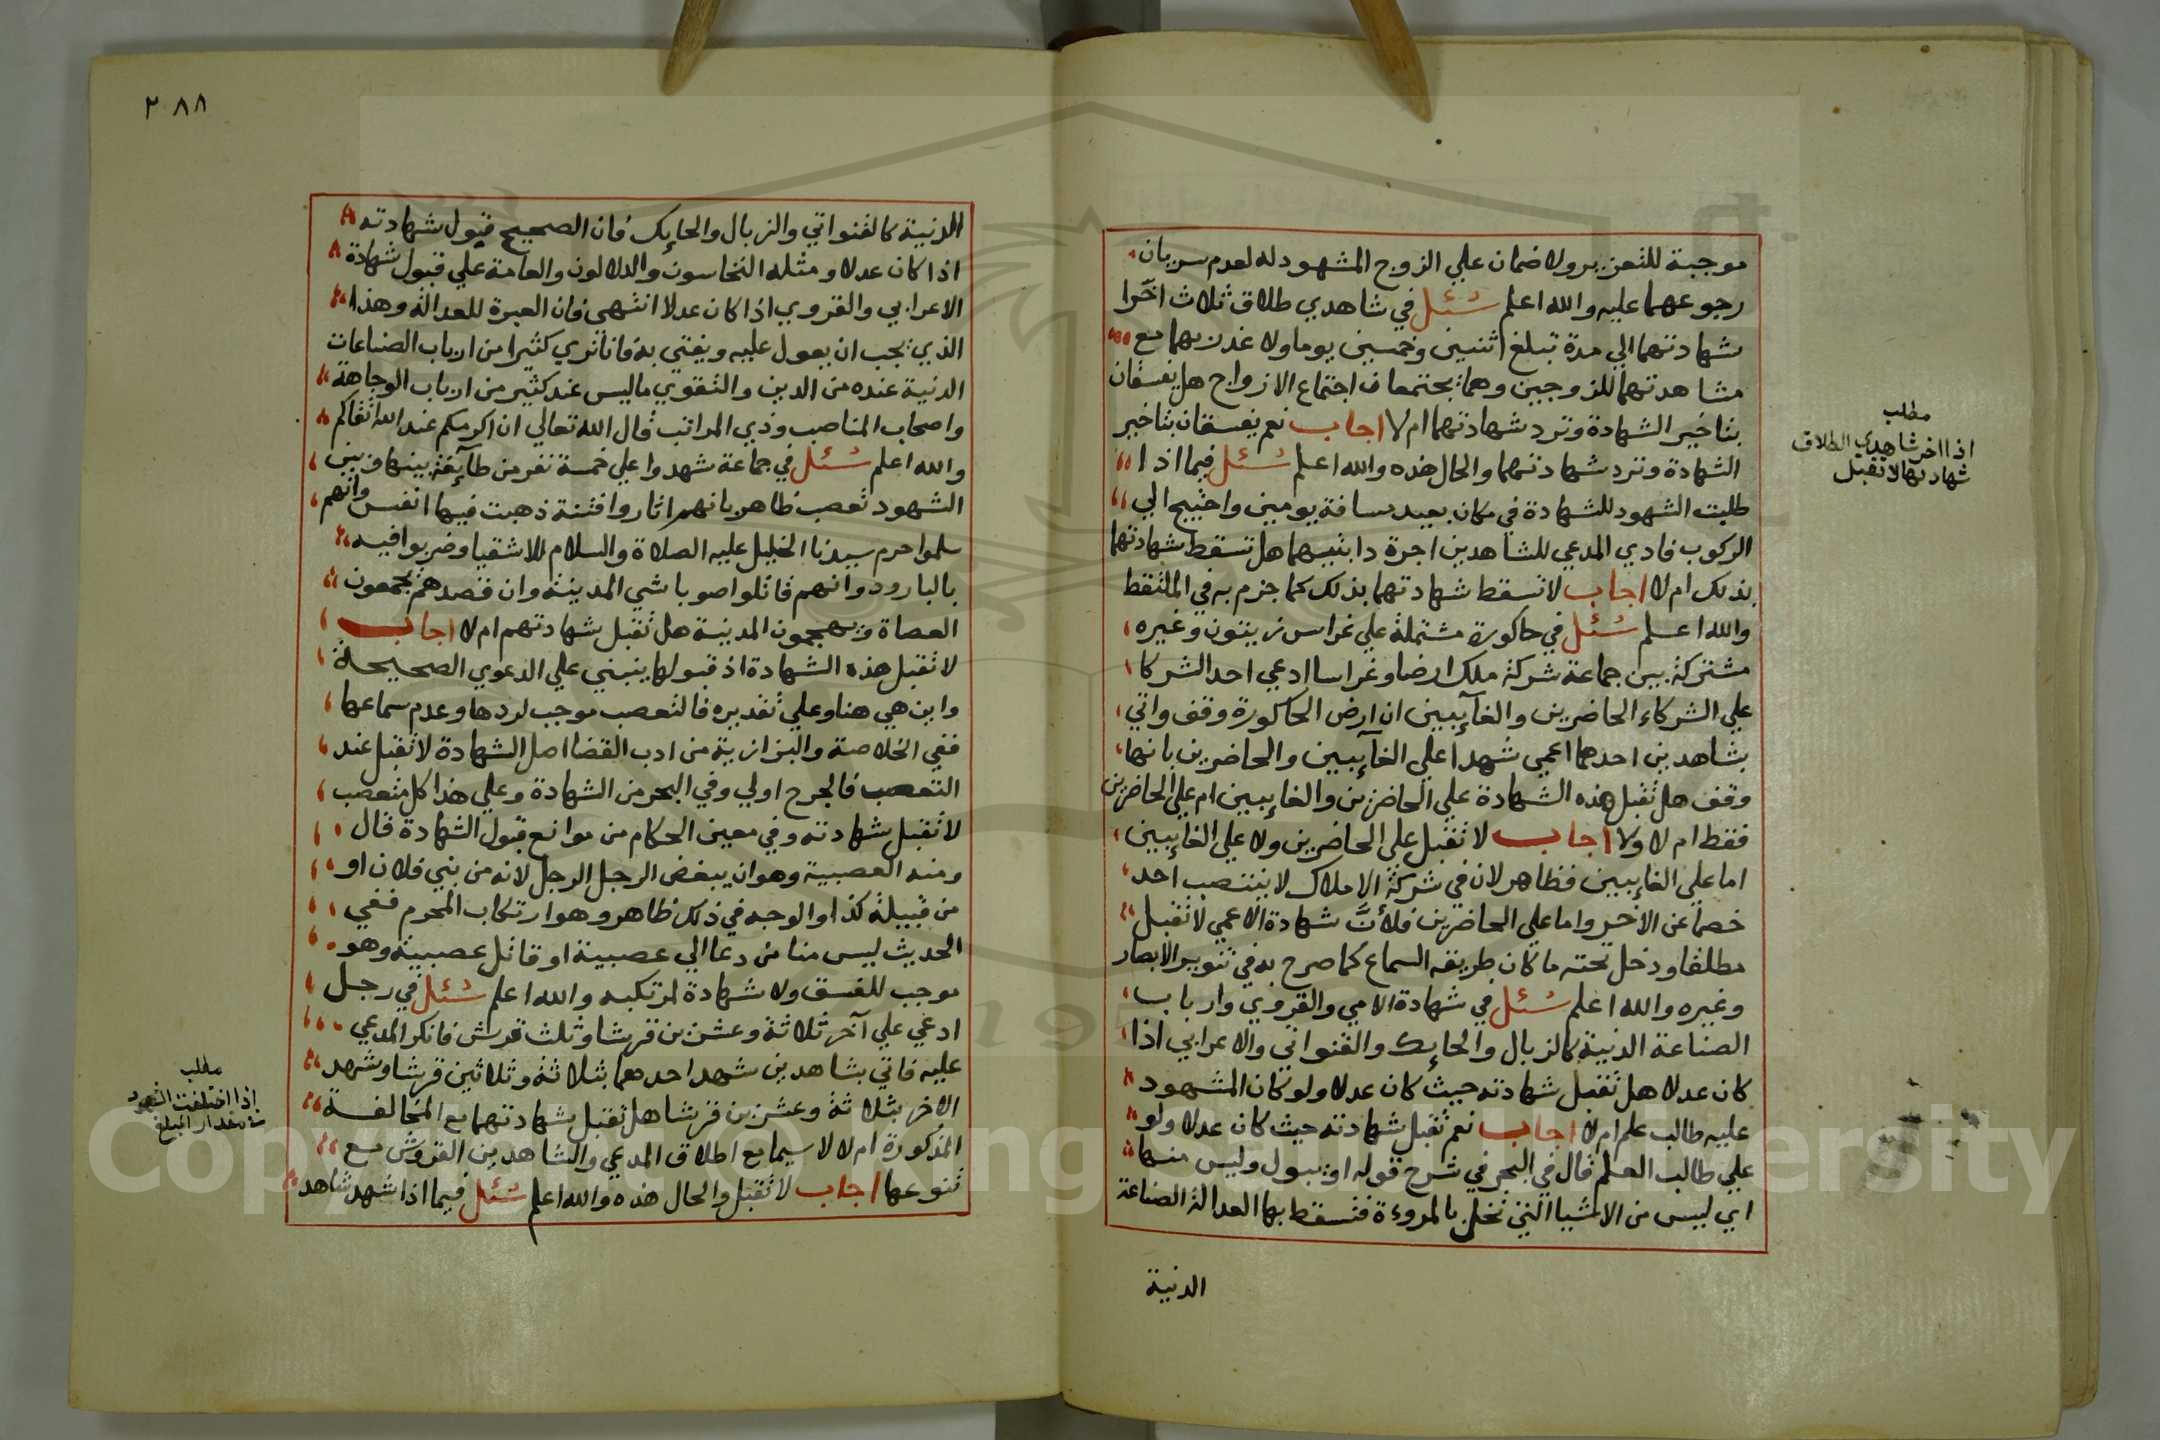 موجبة للتعزير ولا ضمان علي الزوج المشهود له لعدم سريان
رجوعهما عليه والله اعلم سئل في شاهدي طلاق ثلاث اخّرا
شهادتهما الي مدة تبلغ اثنين وخمسين يوما ولا عذر بهما مع
مشاهدتهما للزوجين وهما يجتمعان اجتماع الازواج هل يفسقان
بتاخير الشهادة وترد شهادتهما ام لا اجاب نعم يفسقان بتاخير
الشهادة وترد شهادتهما والحال هذه والله اعلم سئل فيما اذا
طلبت الشهود للشهادة في مكان بعيد مسافة يومين واحتيج الي
الركوب فادي المدعي للشاهدين اجرة دابتيهما هل تسقط شهادتهما
بذلك ام لا اجاب لا تسقط شهادتهما بذلك كما جزم به في الملتقط
والله اعلم سئل في حاكورة مشتملة علي غراس زيتون وغيره
مشتركة بين جماعة شركة ملك ارضا وغراسا ادعي احد الشركا
علي الشركاء الحاضرين والغآيبين ان ارض الحاكورة وقف واتي
بشاهدين احدهما اعمي شهدا علي الغآيبين والحاضرين بانها
وقف هل تقبل هذه الشهادة علي الحاضرين والغايبين ام علي الحاضرين
فقط ام لا ولا اجاب لا تقبل علي الحاضرين ولا علي الغايبين
اما علي الغايبين فظاهر لان في شركة الاملاك لا ينتصب احد
خصما عن الاخر واما علي الحاضرين فلأنَّ شهادة الاعمي لا تقبل
مطلقا ودخل تحته ما كان طريقه السماع كما صرح به في تنوير الابصار
وغيره والله اعلم سئل في شهادة الامي والقروي وارباب
الصناعة الدنية كالزبال والحايك والقنواتي والاعرابي اذا
كان عدلا هل تقبل شهادته حيث كان عدلا ولو كان المشهود
عليه طالب علم ام لا اجاب نعم تقبل شهادته حيث كان عدلا ولو
علي طالب العلم قال في البحر في شرح قوله او يبول وليس منها
اي ليس من الاشيا التي تخل بالمروءة فتسقط بها العدالة الصناعة
الدنية
مطلب
اذا اخر شاهدي الطلاق
شهادتهما لا تقبل
٢٨٨
الدنية كالقنواتي والزبال والحايك فان الصحيح قبول شهادته
اذا كان عدلا ومثله النخاسون والدلالون والعامة علي قبول شهادة
الاعرابي والقروي اذا كان عدلا انتهي فان العبرة للعدالة وهذا
الذي يجب ان يعول عليه ويفتي به فانا نري كثيرا من ارباب الصناعات
الدنية عنده من الدين والتقوي ما ليس عند كثير من ارباب الوجاهة
واصحاب المناصب وذي المراتب قال الله تعالي ان اكرمكم عند الله اتقاكم
والله اعلم سئل في جماعة شهدوا علي خمسة نفر من طآيفة بينها وبين
الشهود تعصب ظاهر بانهم اثاروا فتنة ذهبت فيها انفس وانهم
سلموا حرم سيدنا الخليل عليه الصلاة والسلام للاشقيا وضربوا فيه
بالبارود وانهم قاتلوا صوباشي المدينة وان قصدهم يجمعون
العصاة ويهجمون المدينة هل تقبل شهادتهم ام لا اجاب
لا تقبل هذه الشهادة اذ قبولها ينبني علي الدعوي الصحيحة
واين هي هنا وعلي تقديره فالتعصب موجب لردها وعدم سماعها
ففي الخلاصة والبزازية من ادب القضا اصل الشهادة لا تقبل عند
التعصب فالجرح اولي وفي البحر من الشهادة وعلي هذا كل متعصب
لا تقبل شهادته وفي معين الحكام من موانع قبول الشهادة قال
ومنه العصبية وهو ان يبغض الرجل الرجل لانه من بني فلان او
من قبيلة كذا والوجه في ذلك ظاهر وهو ارتكاب المحرم ففي
الحديث ليس منا من دعا الي عصبية او قاتل عصبية وهو
موجب للفسق ولا شهادة لمرتكبه والله اعلم سئل في رجل
ادعي علي آخر ثلاثة وعشرين قرشا وثلث قرش فانكر المدعي
عليه فاتي بشاهدين شهد احدهما بثلاثة وثلاثين قرشا وشهد
الاخر بثلاثة وعشرين قرشا هل تقبل شهادتهما مع المخالفة
المذكورة ام لا لا سيما مع اطلاق المدعي والشاهدين القروش مع
تنوعها اجاب لا تقبل والحال هذه والله اعلم سئل فيما اذا شهد شاهد
مطلب
اذا اختلفت الشهود
في مقدار المبلغ